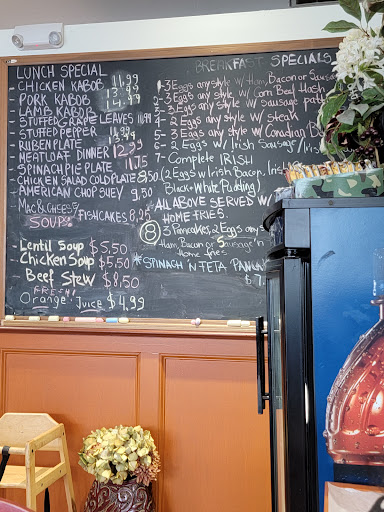 LUNCH SPECIAL
CHICKEN KABOB 11.99
PORK KABOB 13.99
LAMB KABOB 14.99
STUFFED GRAPE LEAVES 11.99
STUFFED PEPPER 11.99
RUBEN PLATE
MEATLOAF DINNER 12.99
SPINACH PIE PLATE 11.75
CHICKEN SALAD COLD PLATE 8.50
AMERICAN CHOP SUEY 9.50
MAC & CHEESE
FISHCAKES 8.25
SOUPS
Lentil Soup $5.50
Chicken Soup $5.50
Beef Stew $8.50
FRESH!
Orange Juice $4.99
BREAKFAST SPECIALS
1-3 Eggs any style w/ Ham, Bacon or Sausa
2-3 Eggs any style w/ Corn Beef Hash
3-3 Eggs any style w/ Sausage patt
4-2 Eggs any style w/ steak
5-3 Eggs any style w/ Canadian B
6-2 Eggs w/ Irish Sausage/Iris
7-Complete IRISH
(2 Eggs w/ Irish Bacon, Iris
Black + White Pudding)
ALL ABOVE SERVED w/
HOME FRIES.
8 3 Pancakes, 2 Eggs any s
Ham, Bacon or Sausage 'n
Home fries
*SPINACH 'N FETA PAN
$7.